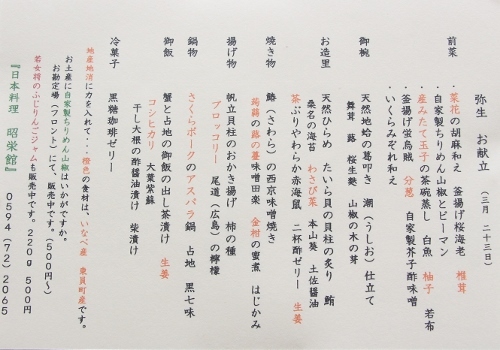 弥生 お献立 (三月 二十三日)
前菜 ・菜花の胡麻和え 釜揚げ桜海老 椎茸
・自家製ちりめん山椒とピーマン
・産みたて玉子の茶碗蒸し 白魚 柚子 若布
・釜揚げ蛍烏賊 分葱 自家製芥子酢味噌
・いくらみぞれ和え
御椀 天然地蛤の葛叩き 潮(うしお)仕立て
舞茸 蕗 桜生麩 山椒の木の芽
お造里 天然ひらめ たいら貝の貝柱の炙り 鮪
桑名の海苔 わさび菜 本山葵 土佐醤油
茶ぶりやわらか赤海鼠 二杯酢ゼリー 生姜
焼き物 鰆(さわら)の西京味噌焼き
蒟蒻の蕗の薹味噌田楽 金柑の蜜煮 はじかみ
揚げ物 帆立貝柱のおかき揚げ 柿の種
ブロッコリー 尾道(広島)の檸檬
鍋物 さくらポークのアスパラ鍋 占地 黒七味
御飯 蟹と占地の御飯の出し茶漬け 生姜
コシヒカリ 大葉紫蘇
干し大根の酢醤油漬け 柴漬け
冷菓子 黒糖珈琲ゼリー
地産地消に力を入れて・・橙色の食材は、いなべ産 東員町産です。
お土産に自家製ちりめん山椒はいかがですか。
お勘定場(フロント)にて、販売中です。(500円~)
若女将のふじりんごジャムも販売中です。220g 500円
『日本料理 昭栄館』 0594(72)2065